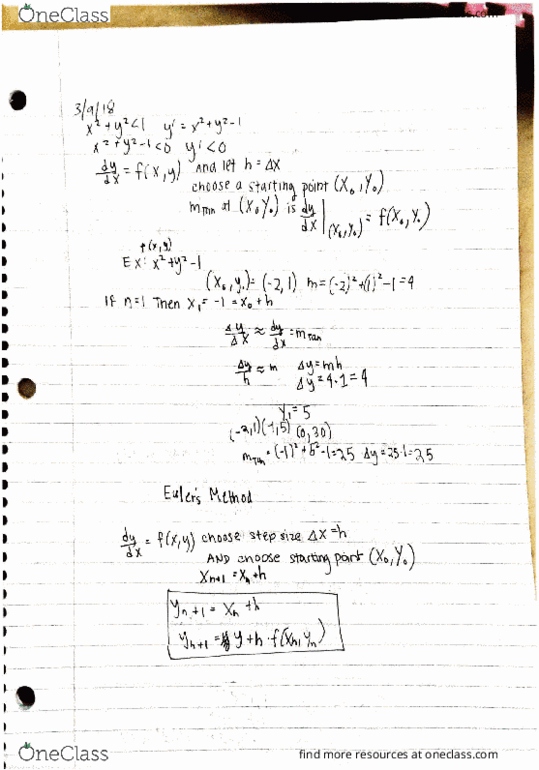 OneClass
oneclass.com
3/9/18
x² + y² < 1   y' = x² + y² - 1
x² + y² - 1 < 0   y' < 0
dy/dx = f(x, y) And let h = Δx
choose a starting point (X₀, Y₀)
m_Tan at (X₀ Y₀) is dy/dx |(X₀, Y₀) = f(X₀, Y₀)
f(x, y)
Ex: x² + y² - 1
(X₀, y₀) = (-2, 1)   m = (-2)² + (1)² - 1 = 4
If h=1 Then x₁ = -1 = x₀ + h
Δy/Δx ≈ dy/dx = m_Tan
Δy/h ≈ m   Δy = mh
Δy = 4·1 = 4
Y₁ = 5
(-2, 1) (-1, 5) (0, 30)
m_Tan = (-1)² + 5² - 1 = 25   Δy = 25·1 = 25
Euler's Method
dy/dx = f(x, y) choose step size Δx = h
AND choose starting point (X₀, Y₀)
Xn+1 = Xn + h
yn+1 = Xn + h
yn+1 = y + h · f(xn, yn)
OneClass
find more resources at oneclass.com